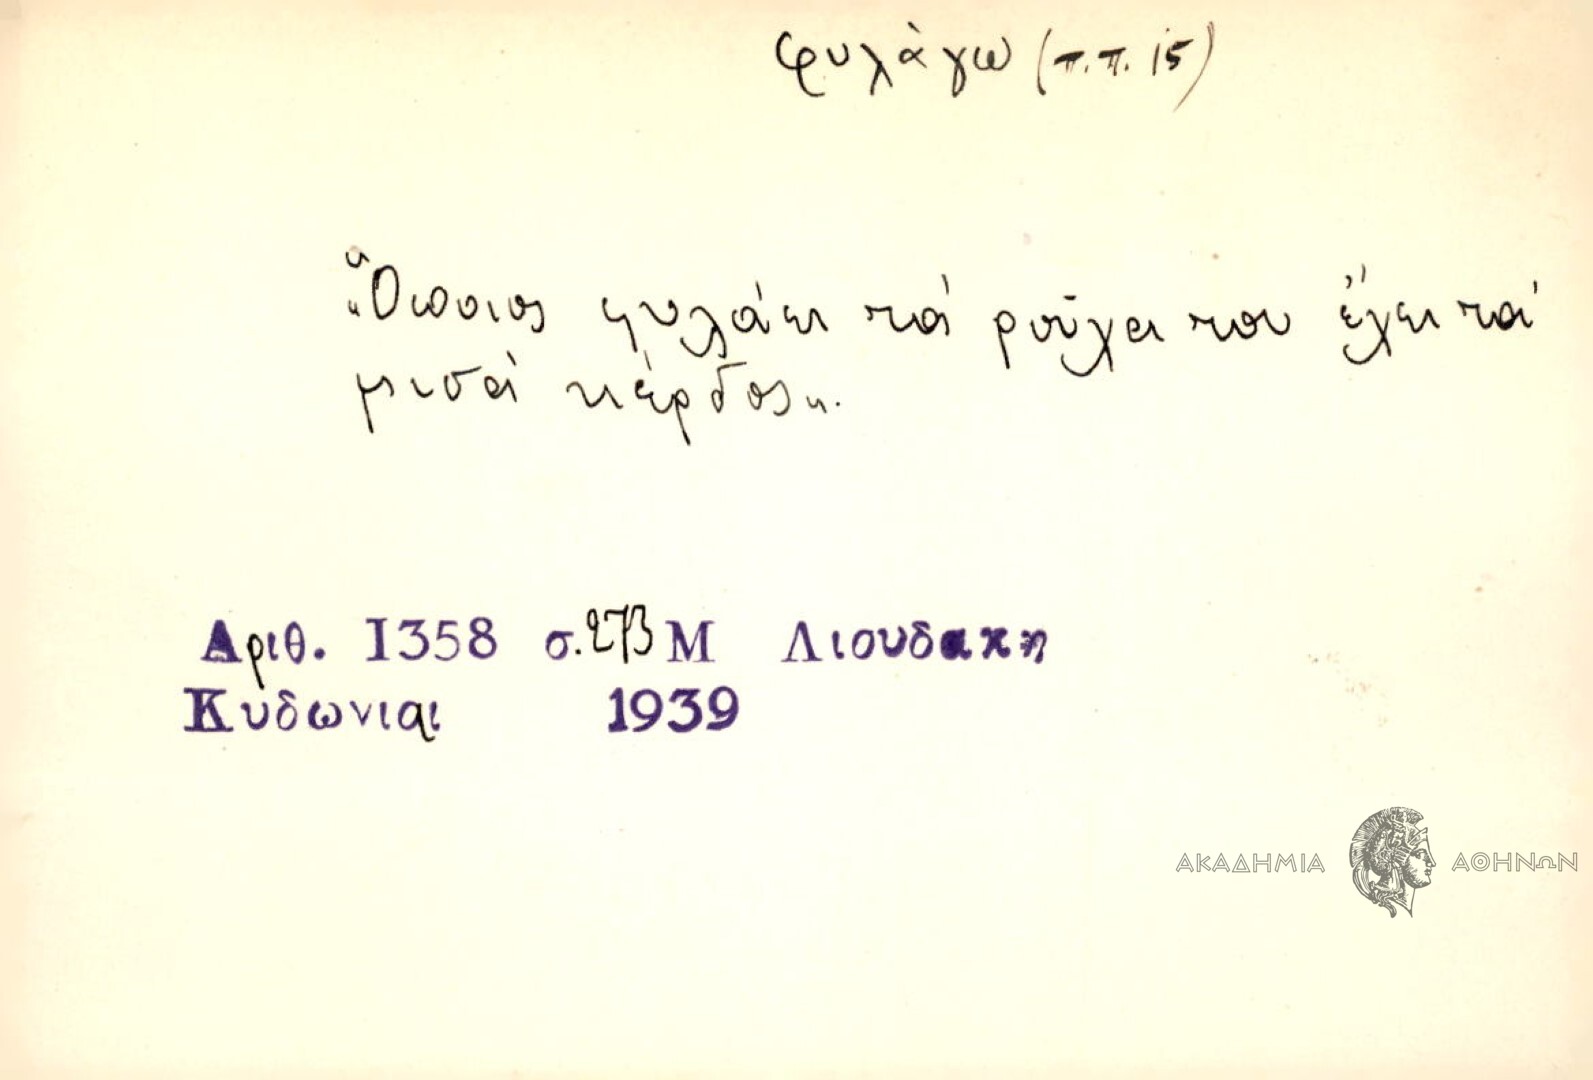 φυλάγω (π.π. 15)
"Όποιος φυλάει τά ρούχα του έχει τά
μισά κέρδος".
Αριθ. 1358 σ. 273 Μ Λιουδακη
Κυδωνιαι 1939
ΑΚΑΔΗΜΙΑ ΑΘΗΝΩΝ